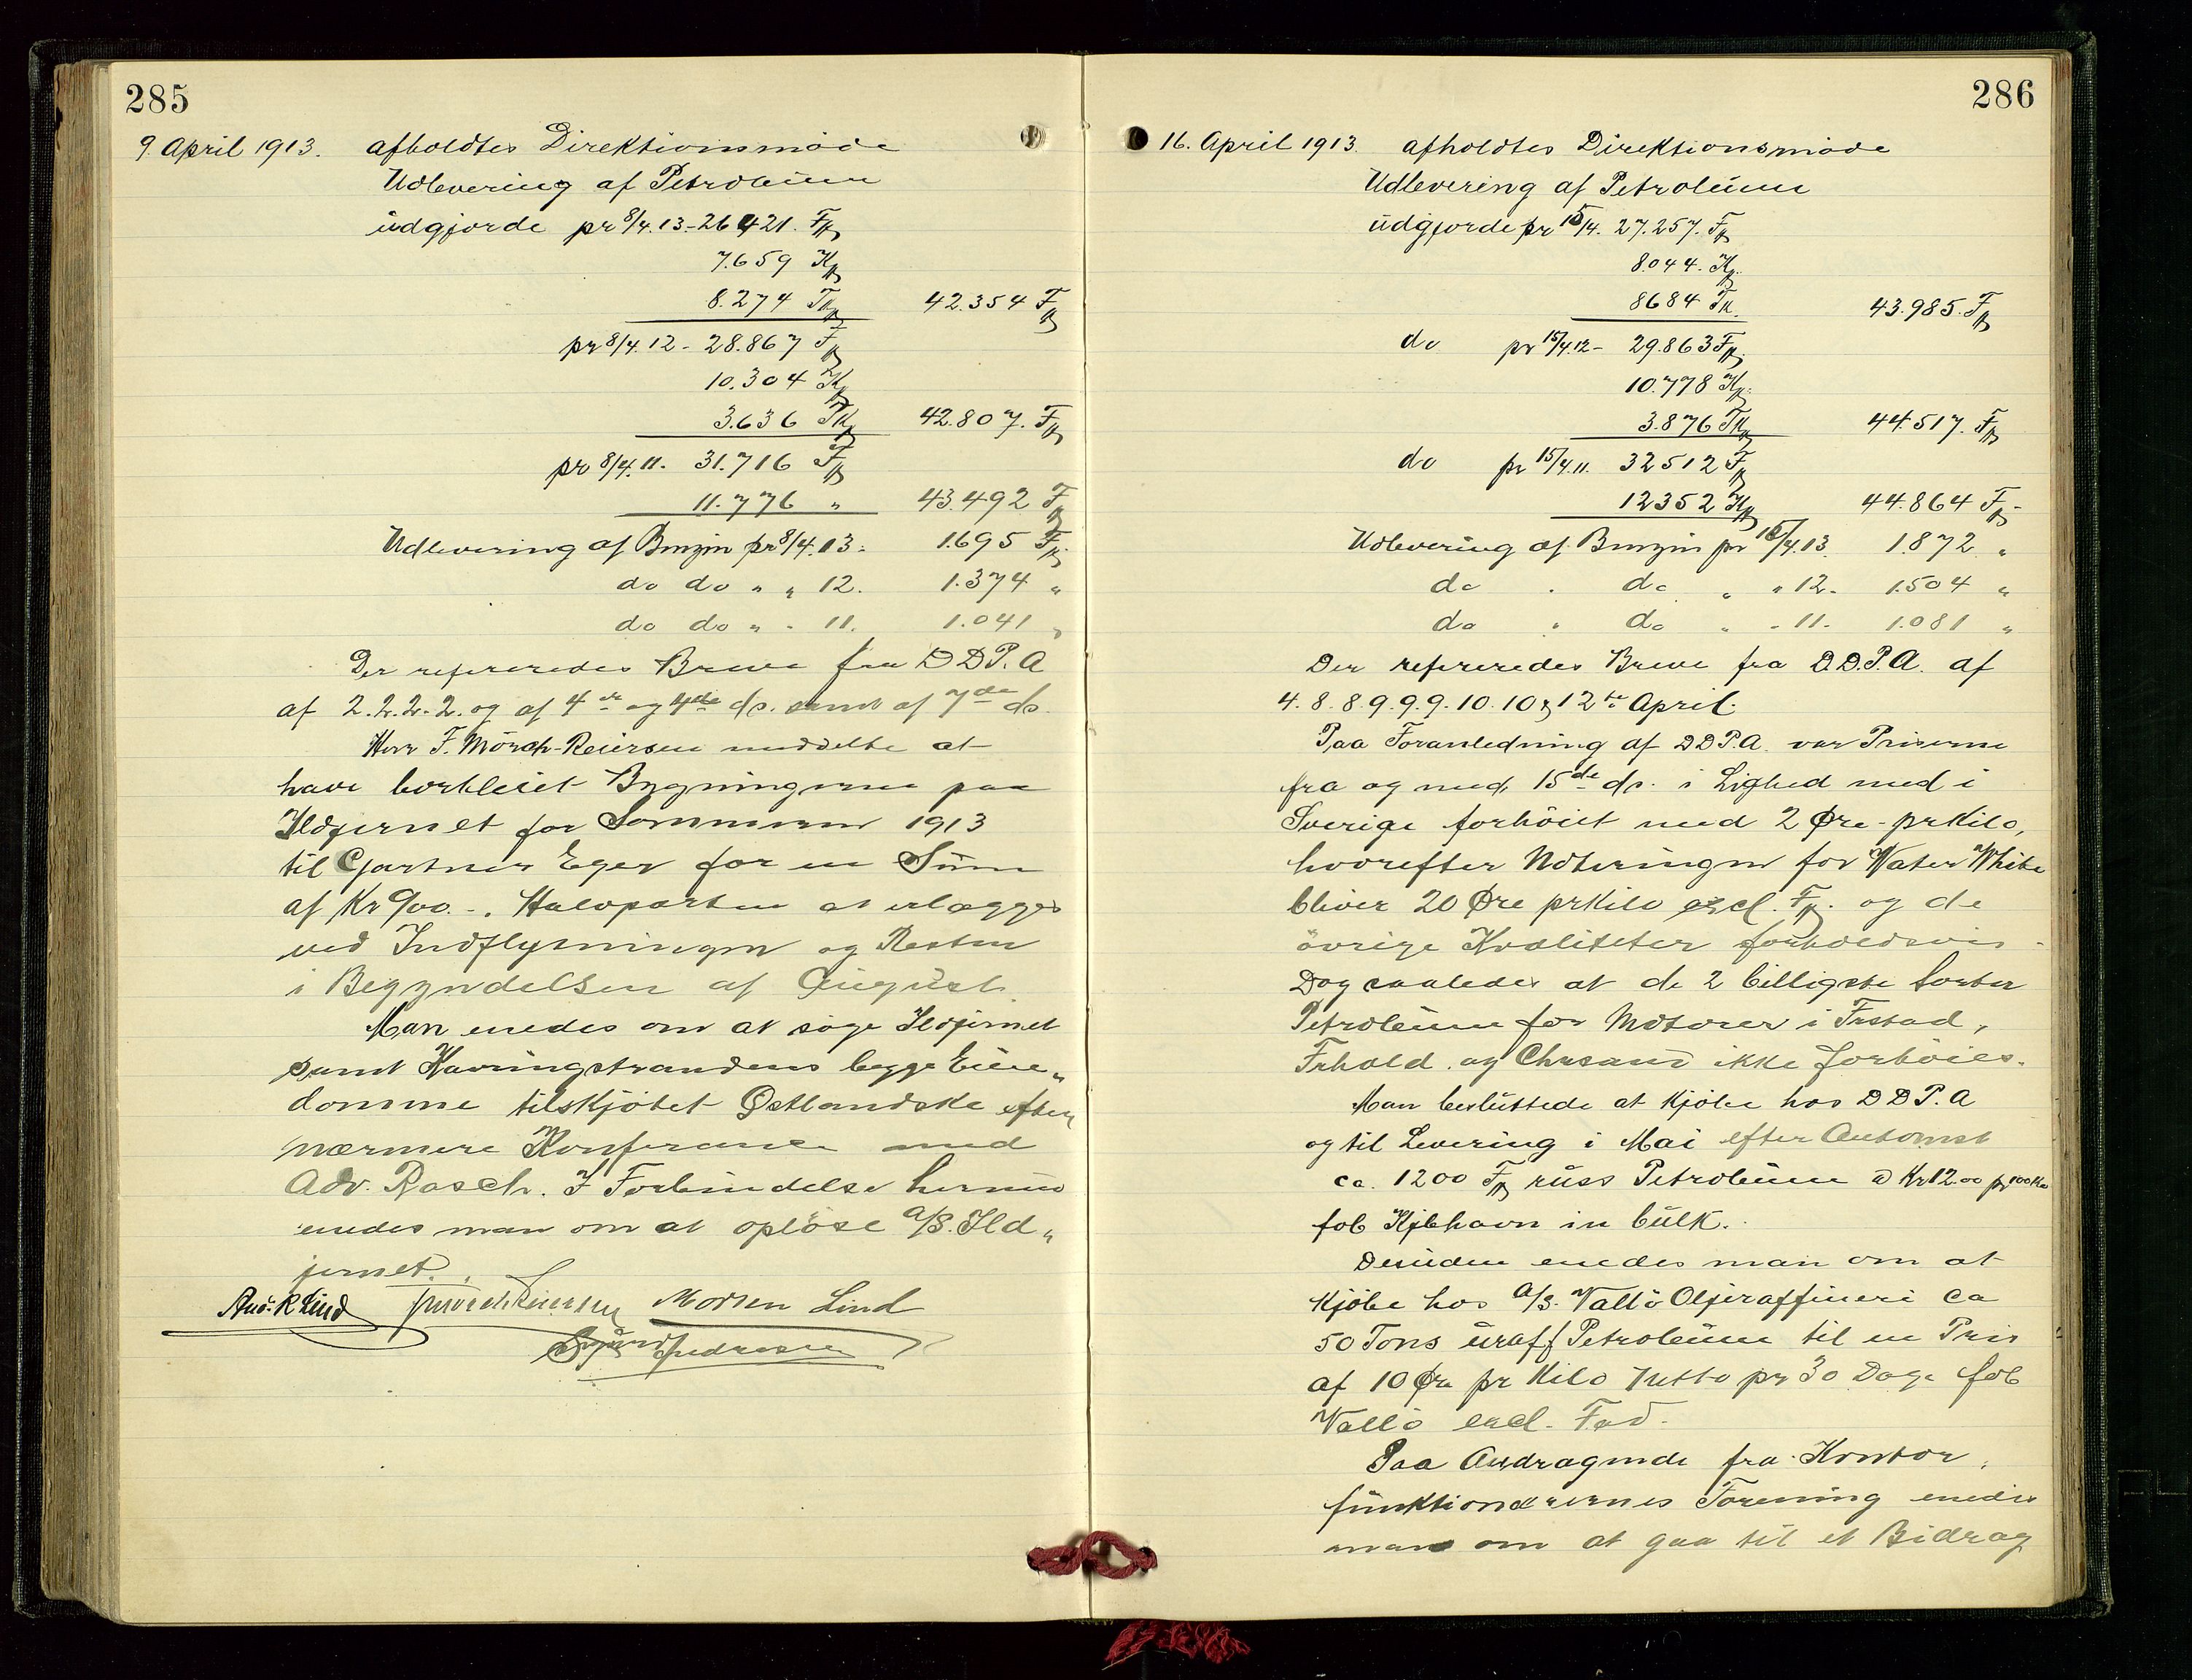 285
9. April 1913. afholdtes Direktionsmöde
Udlevering af Petroleum
udgjorde pr 8/4.13 - 26421. Fp
7.659 Kp
8.274 Tkp 42.354 Fp
pr 8/4.12 - 28.867 Fp
10.304 Kp
3.636 Tkp 42.807. Fp
pr 8/4.11. 31.716 Fp
11.776 " 43.492 Fp
Udlevering af Benzin pr 8/4.13: 1.695 Fp.
do do " " 12. 1.374 "
do do " " 11. 1.041 "
Der refereredes Breve fra D D P. A
af 2. 2. 2. 2. og af 4de og 4de ds. samt af 7de ds.
Herr F. Mörch-Reiersen meddelte at
have bortleiet Bygningerne paa
Ildjernet for Sommeren 1913
til Gartner Eger for en Sum
af Kr 900.-. Halvparten at erlægges
ved Indflytningen og Resten
i Begyndelsen af August.
Man enedes om at söge Ildjernet
samt Kavringstrandens begge Eien„
domme tilskjötet Østlandske efter
nærmere Konferance med
Adv. Rasch. I Forbindelse hermed
enedes man om at oplöse A/S. Ild„
jernet.
And. R Lind FMörchReiersen Morten Lind
Sigurd Pedersen
286
16. April 1913. afholdtes Direktionsmöde
Udlevering af Petroleum
udgjorde pr 15/4. 27.257. Fp
8.044. Kp.
8684 Tk. 43.985. Fp
do pr 15/4.12 - 29.863 Fp.
10.778 Kp.
3.876 Tkp 44.517. Fp
do pr 15/4.11. 32512 Fp
12352 Kp 44.864 Fp.
Udlevering af Benzin pr 15/4.13. 1.872 "
do " do " " 12. 1.504 "
do " do " " 11. 1.081 "
Der refereredes Breve fra D.D.P.A. af
4. 8. 8. 9. 9. 9. 10. 10 & 12te April.
Paa Foranledning af D D P. A. var Priserne
fra og med 15de ds. i Lighed med i
Sverige forhöiet med 2 Øre pr Kilo,
hvorefter Noteringen for Water White
bliver 20 Øre pr Kilo excl. Fp. og de
övrige Kvaliteter forholdsvis.
Dog saaledes at de 2 billigste Sorter
Petroleum for Motorer i Frstad,
Frhald. og Chrsand ikke forhöies.
Man besluttede at kjöbe hos D D P. A
og til Levering i Mai efter Automat
ca. 1200 Fp russ Petroleum a Kr 12.00 pr 100 Ko
fob Kjbhavn in bulk.
Desuden enedes man om at
kjöbe hos A/S. Vallö Oljeraffineri ca
50 Tons uraff Petroleum til en Pris
af 10 Øre pr Kilo netto pr 30 Dage fob
Vallö excl. Fad.
Paa Andragende fra Kontor„
funktionærernes Forening enedes
man om at gaa til et Bidrag